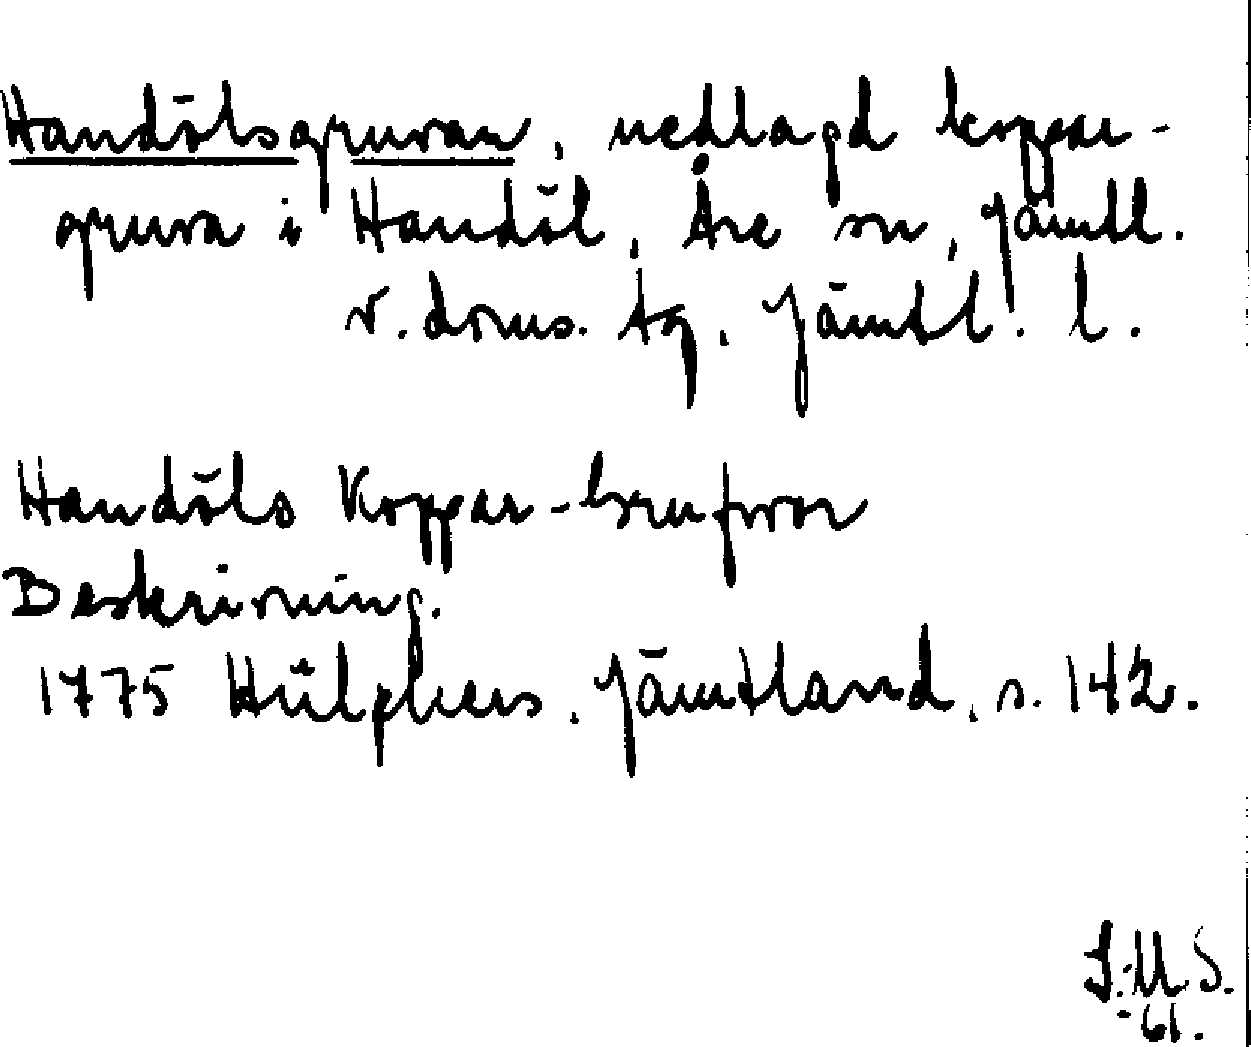 Handölsgruvan, nedlagd koppar-
gruva i Handöl, Åre sn, Jämtl.
v. doms. tg, Jämtl. l.
Handöls Koppar-Grufvor
Beskrivning.
1775 Hülphers, Jämtland, s. 142.
S.U.S.
-61.